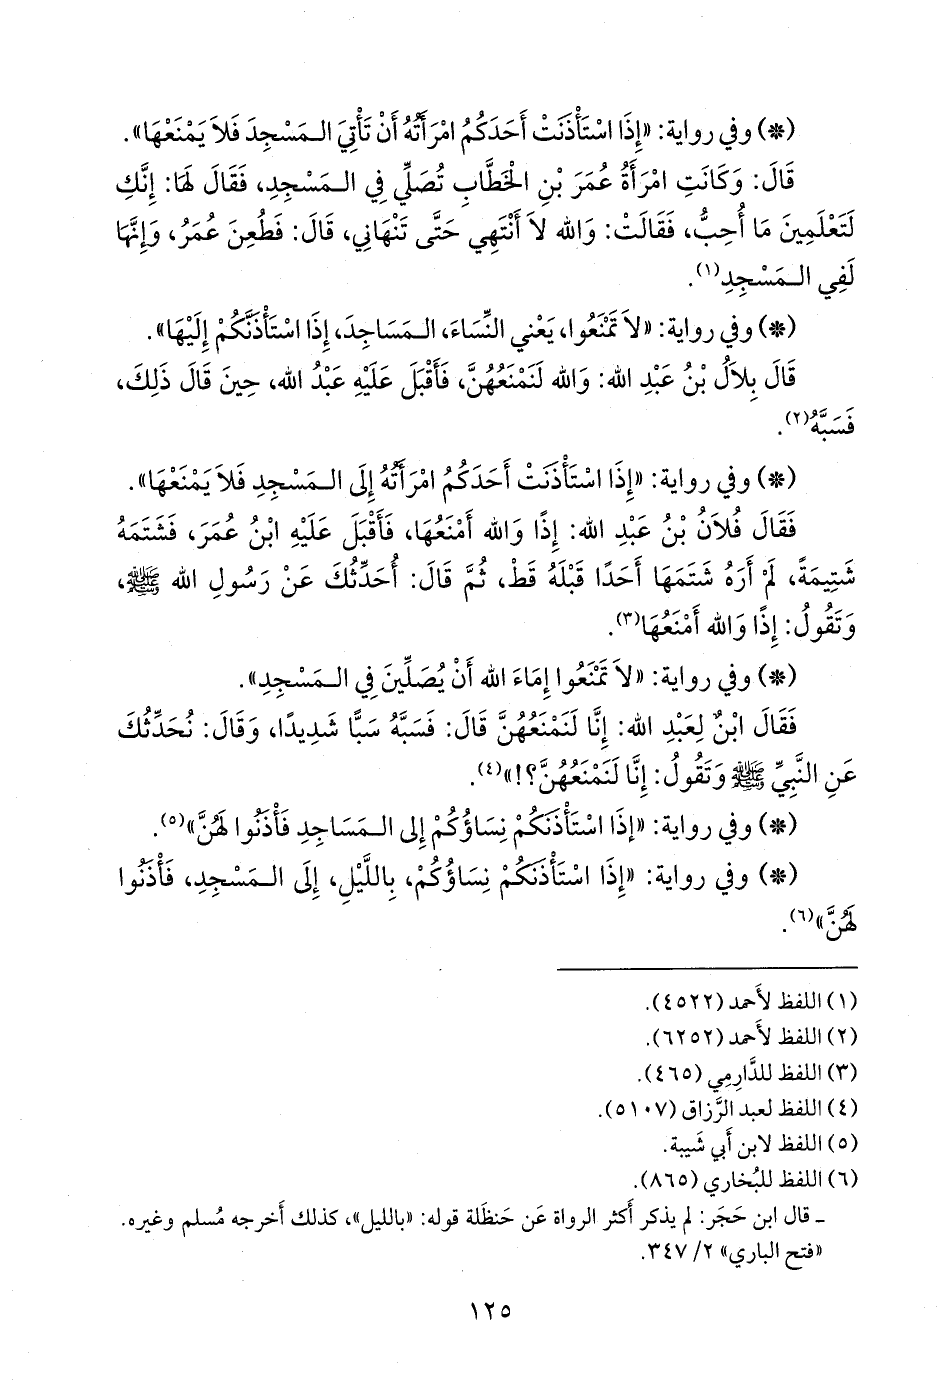 (*) وفي رواية: «إِذَا اسْتَأْذَنَتْ أَحَدَكُمُ امْرَأَتُهُ أَنْ تَأْتِيَ الـمَسْجِدَ فَلاَ يَمْنَعْهَا».
قَالَ: وَكَانَتِ امْرَأَةُ عُمَرَ بْنِ الخَطَّابِ تُصَلِّي فِي الـمَسْجِدِ، فَقَالَ لَهَا: إِنَّكِ
لَتَعْلَمِينَ مَا أُحِبُّ، فَقَالَتْ: وَالله لاَ أَنْتَهِي حَتَّى تَنْهَانِي، قَالَ: فَطُعِنَ عُمَرُ، وَإِنَّهَا
لَفِي الـمَسْجِدِ(١).
(*) وفي رواية: «لاَ تَمْنَعُوا، يَعْنِي النِّسَاءَ، الـمَسَاجِدَ، إِذَا اسْتَأْذَنَّكُمْ إِلَيْهَا».
قَالَ بِلاَلُ بْنُ عَبْدِ الله: وَالله لَنَمْنَعُهُنَّ، فَأَقْبَلَ عَلَيْهِ عَبْدُ الله، حِينَ قَالَ ذَلِكَ،
فَسَبَّهُ(٢).
(*) وفي رواية: «إِذَا اسْتَأْذَنَتْ أَحَدَكُمُ امْرَأَتُهُ إِلَى الـمَسْجِدِ فَلاَ يَمْنَعْهَا».
فَقَالَ فُلاَنُ بْنُ عَبْدِ الله: إِذًا وَالله أَمْنَعُهَا، فَأَقْبَلَ عَلَيْهِ ابْنُ عُمَرَ، فَشَتَمَهُ
شَتِيمَةً، لَمْ أَرَهُ شَتَمَهَا أَحَدًا قَبْلَهُ قَطْ، ثُمَّ قَالَ: أُحَدِّثُكَ عَنْ رَسُولِ الله ﷺ،
وَتَقُولُ: إِذًا وَالله أَمْنَعُهَا(٣).
(*) وفي رواية: «لاَ تَمْنَعُوا إِمَاءَ الله أَنْ يُصَلِّينَ فِي الـمَسْجِدِ».
فَقَالَ ابْنٌ لِعَبْدِ الله: إِنَّا لَنَمْنَعُهُنَّ قَالَ: فَسَبَّهُ سَبًّا شَدِيدًا، وَقَالَ: نُحَدِّثُكَ
عَنِ النَّبِيِّ ﷺ وَتَقُولُ: إِنَّا لَنَمْنَعُهُنَّ؟!»(٤).
(*) وفي رواية: «إِذَا اسْتَأْذَنَكُمْ نِسَاؤُكُمْ إلى الـمَسَاجِدِ فَأْذَنُوا لَهُنَّ»(٥).
(*) وفي رواية: «إِذَا اسْتَأْذَنَكُمْ نِسَاؤُكُمْ، بِاللَّيْلِ، إِلَى الـمَسْجِدِ، فَأْذَنُوا
لَهُنَّ»(٦).
(١) اللفظ لأَحمد (٤٥٢٢).
(٢) اللفظ لأَحمد (٦٢٥٢).
(٣) اللفظ للدَّارِمِي (٤٦٥).
(٤) اللفظ لعبد الرَّزاق (٥١٠٧).
(٥) اللفظ لابن أَبي شَيبة.
(٦) اللفظ للبُخاري (٨٦٥).
ـ قال ابن حَجَر: لم يذكر أَكثر الرواة عَن حَنظَلة قوله: «بالليل»، كذلك أَخرجه مُسلم وغيره.
«فتح الباري» ٢/ ٣٤٧.
١٢٥